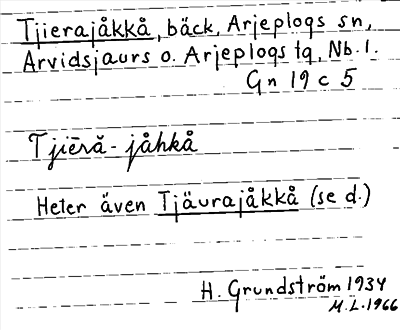 Tjierajåkkå, bäck, Arjeplogs sn,
Arvidsjaurs o. Arjeplogs tg, Nb. l.
Gn 19 c 5
Tjiēră-jåhkå
Heter även Tjäurajåkkå (se d.)
H. Grundström 1934
M.L. 1966